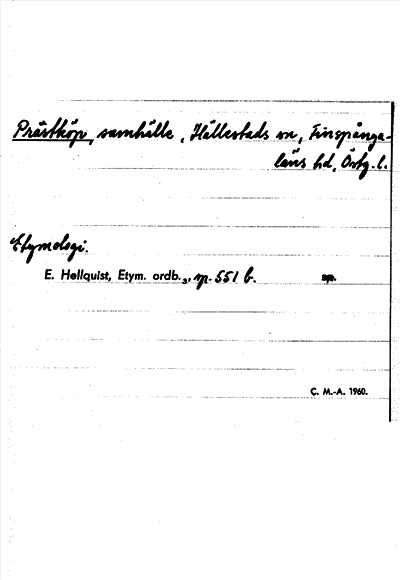 Prästköp, samhälle, Hällestads sn, Finspånga-
läns hd, Östg. l.
Etymologi.
E. Hellquist, Etym. ordb.3, s. 551 b.
C. M.-A. 1960.